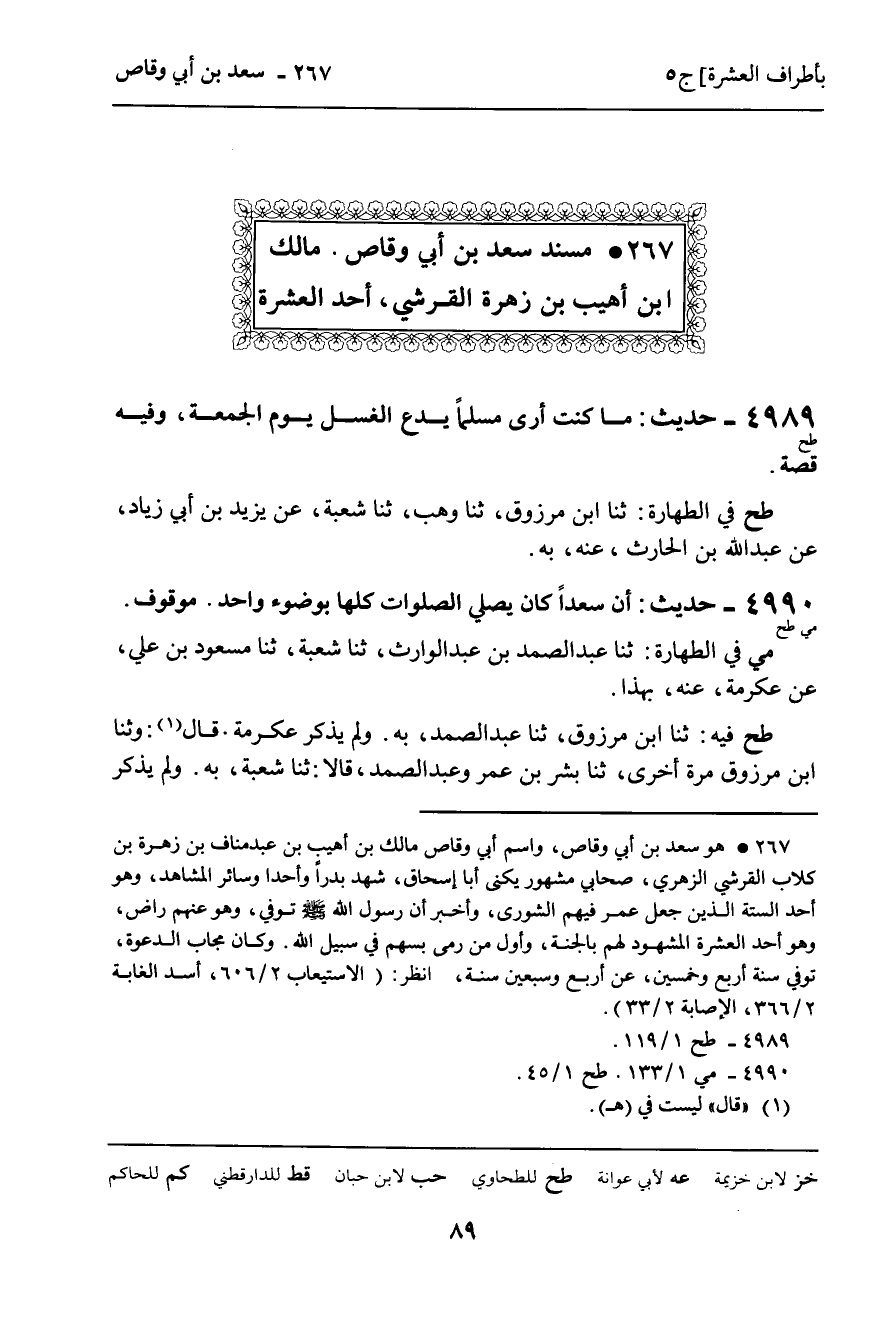 بأطراف العشرة] ج٥
٢٦٧ ـ سعد بن أبي وقاص
٢٦٧● مسند سعد بن أبي وقاص . مالك
ابن أهيب بن زهرة القـرشي، أحد العشرة
٤٩٨٩ ـ حديث : مـا كنت أرى مسلماً يـدع الغسـل يـوم الجمعـة، وفيـه
طح
قصة .
طح في الطهارة: ثنا ابن مرزوق، ثنا وهب، ثنا شعبة، عن يزيد بن أبي زياد،
عن عبدالله بن الحارث ، عنه، به .
٤٩٩٠ ـ حديث : أن سعداً كان يصلي الصلوات كلها بوضوء واحد . موقوف .
مي طح
مي في الطهارة: ثنا عبدالصمد بن عبدالوارث، ثنا شعبة، ثنا مسعود بن علي،
عن عكرمة، عنه، بهذا .
طح فيه: ثنا ابن مرزوق، ثنا عبدالصمد، به . ولم يذكر عكـرمة . قـال(١): وثنا
ابن مرزوق مرة أخرى، ثنا بشر بن عمر وعبدالصمد، قالا: ثنا شعبة، به . ولم يذكر
٢٦٧ ● هو سعد بن أبي وقاص، واسم أبي وقاص مالك بن أهيب بن عبدمناف بن زهـرة بن
كلاب القرشي الزهري، صحابي مشهور يكنى أبا إسحاق، شهد بدراً وأحدا وسائر المشاهد، وهو
أحد الستة الـذين جعل عمـر فيهم الشورى، وأخـبر أن رسول الله ﷺ تـوفي، وهو عنهم راض،
وهو أحد العشرة المشهـود لهم بالجنـة، وأول من رمى بسهم في سبيل الله . وكـان مجاب الـدعوة،
توفي سنة أربع وخمسين، عن أربـع وسبعين سنـة، انظر: ( الاستيعاب ٢/ ٦٠٦، أسـد الغابـة
٢/ ٣٦٦، الإصابة ٢/ ٣٣) .
٤٩٨٩ ـ طح ١/ ١١٩ .
٤٩٩٠ ـ مي ١/ ١٣٣ . طح ١/ ٤٥ .
(١) «قال» ليست في (هـ) .
خز لابن خزيمة عه لأبي عوانة طح للطحاوي حب لابن حبان قط للدارقطني كم للحاكم
٨٩